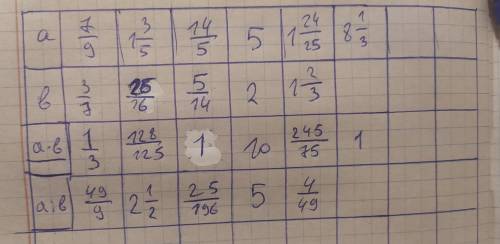 a 7/9 1 3/5 14/5 5 1 24/25 8 1/3
в 3/7 5/14 2 1 2/3
a·в 1/3 128/125 1 10 245/75 1
a:в 49/9 2 1/2 25/196 5 4/49